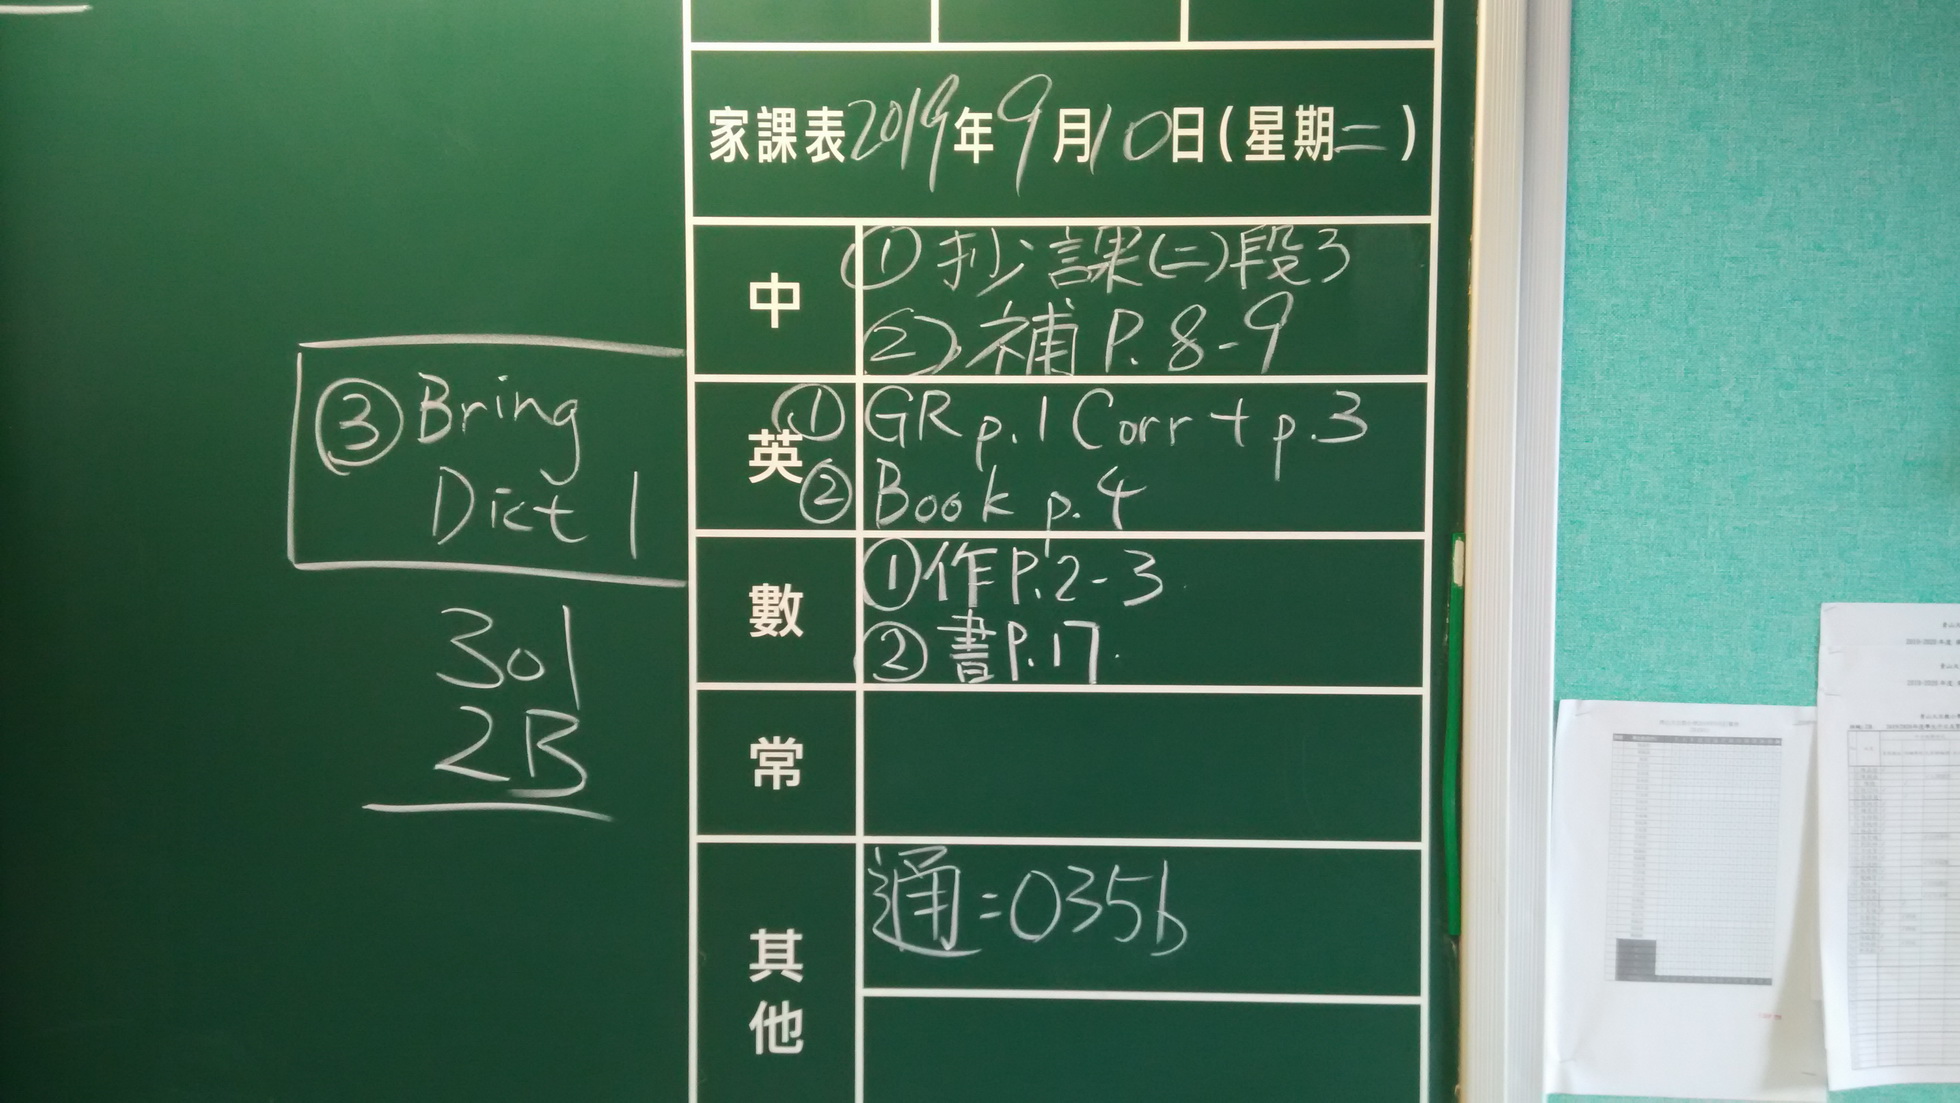 家課表2019年9月10日(星期二)
中
①抄課(二)段3
②補P.8-9
英
①GR p.1 Corr + p.3
②Book p.4
③Bring
Dict 1
數
①作P.2-3
②書P.17
常
其他
通=035b
301
2B